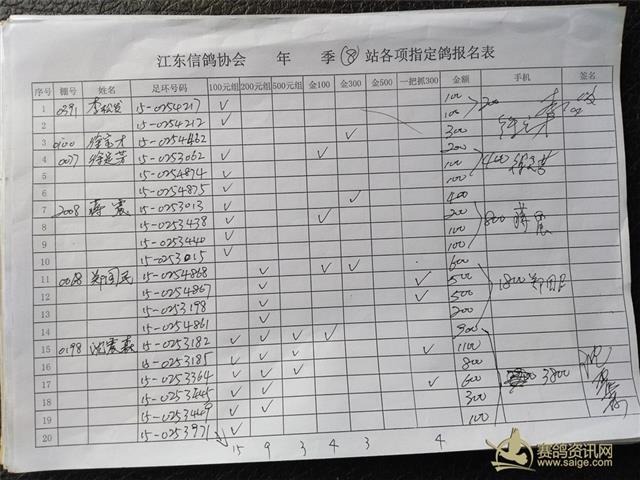 江东信鸽协会 年 季 (8) 站各项指定鸽报名表
序号 棚号 姓名 足环号码 100元组 200元组 500元组 金100 金300 金500 一把抓300 金额 手机 签名
1 0391 李松发 15-0254217 ✓ 100
2 15-0254212 ✓ 100 200
3 0100 15-0254462 ✓ 300
4 0077 15-0253062 ✓ ✓ 200
5 15-0254874 ✓ 100 400
6 15-0254875 ✓ 100
7 2008 蒋震 15-0253013 ✓ ✓ 400
8 15-0253438 ✓ ✓ 200
9 15-0253440 ✓ 100 800 蒋震
10 15-0253015 ✓ 100
11 0068 郑国民 15-0254868 ✓ ✓ ✓ 600
12 15-0254867 ✓ ✓ 500
13 15-0253198 ✓ ✓ 500 1800 郑国民
14 15-0254861 ✓ 200
15 0198 15-0253182 ✓ ✓ ✓ ✓ 900
16 15-0253185 ✓ ✓ ✓ ✓ 1100
17 15-0253364 ✓ ✓ ✓ 800
18 15-0253445 ✓ ✓ ✓ 600 3800
19 15-0253449 ✓ ✓ 300
20 15-0253971 ✓ 100
15 9 3 4 3 4
赛鸽资讯网
www.saige.com